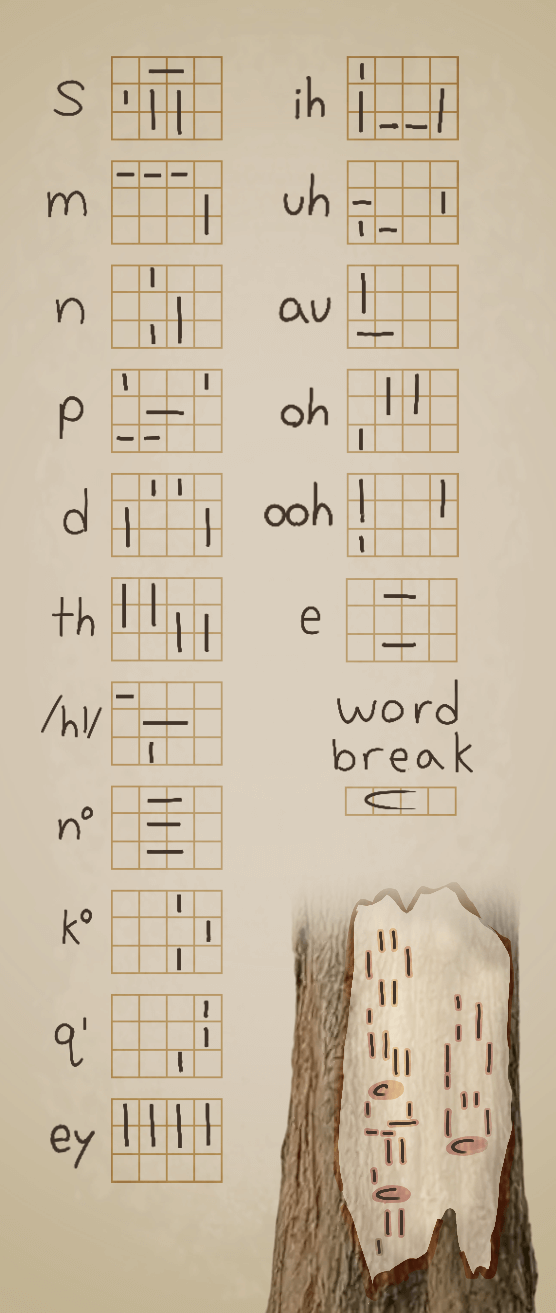 s
m
n
p
d
th
/hl/
n°
k°
q'
ey
ih
uh
au
oh
ooh
e
word
break